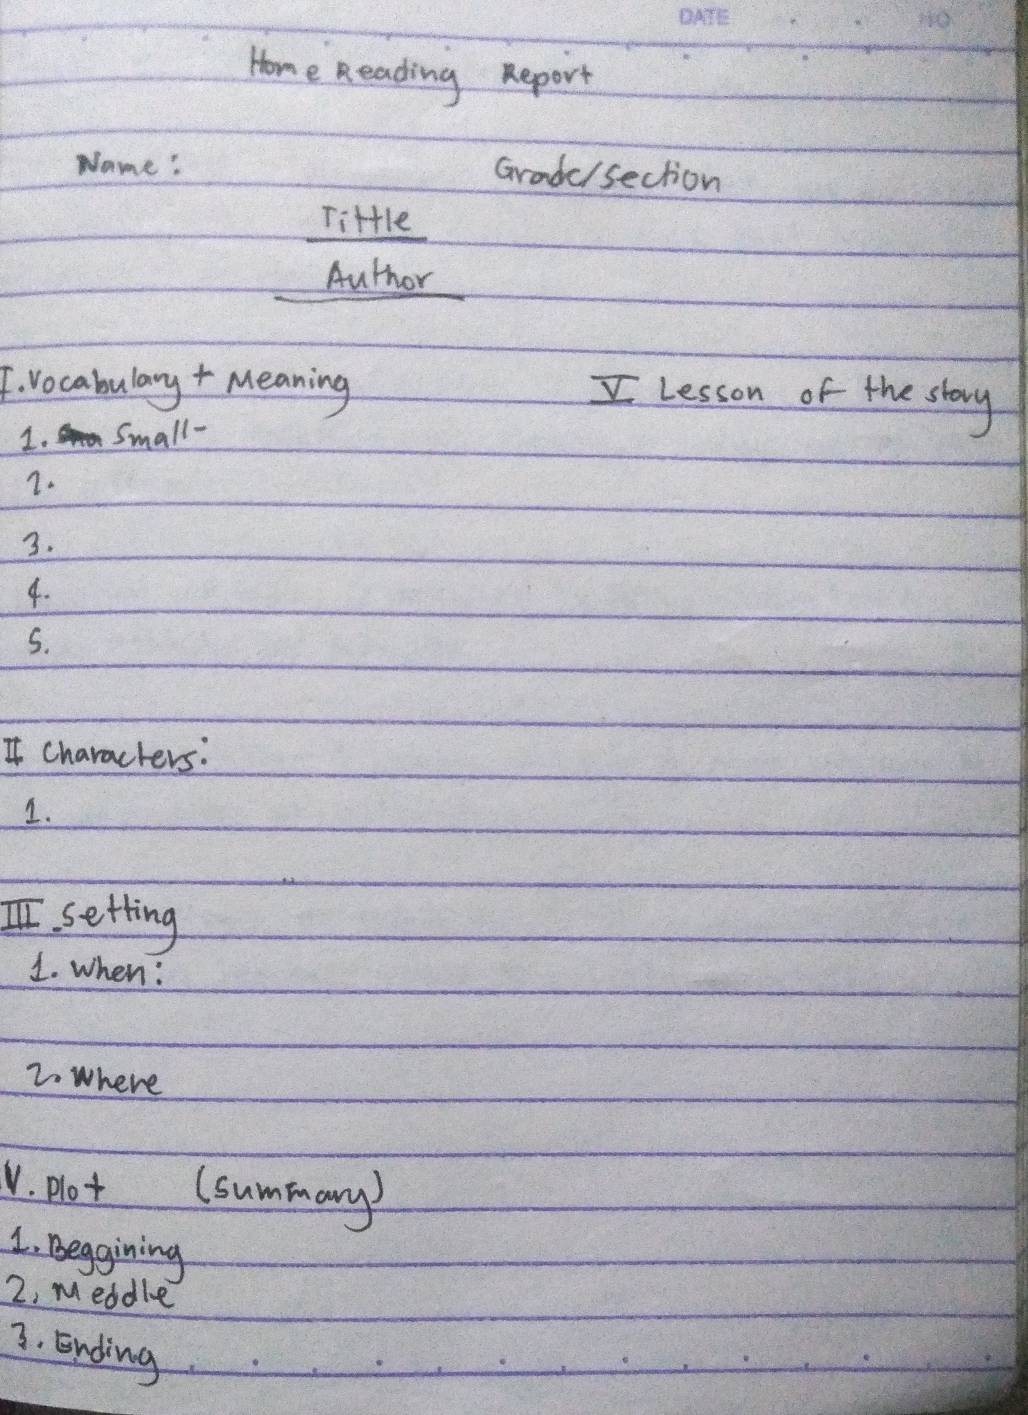 DATE NO
Home Reading Report
Name: Grade/section
Tittle
Author
I. Vocabulary + Meaning
V Lesson of the story
1. Small-
2.
3.
4.
5.
II Characters:
1.
III. Setting
1. When:
2. Where
V. Plot (Summary)
1. Beggining
2. Meddle
3. Ending